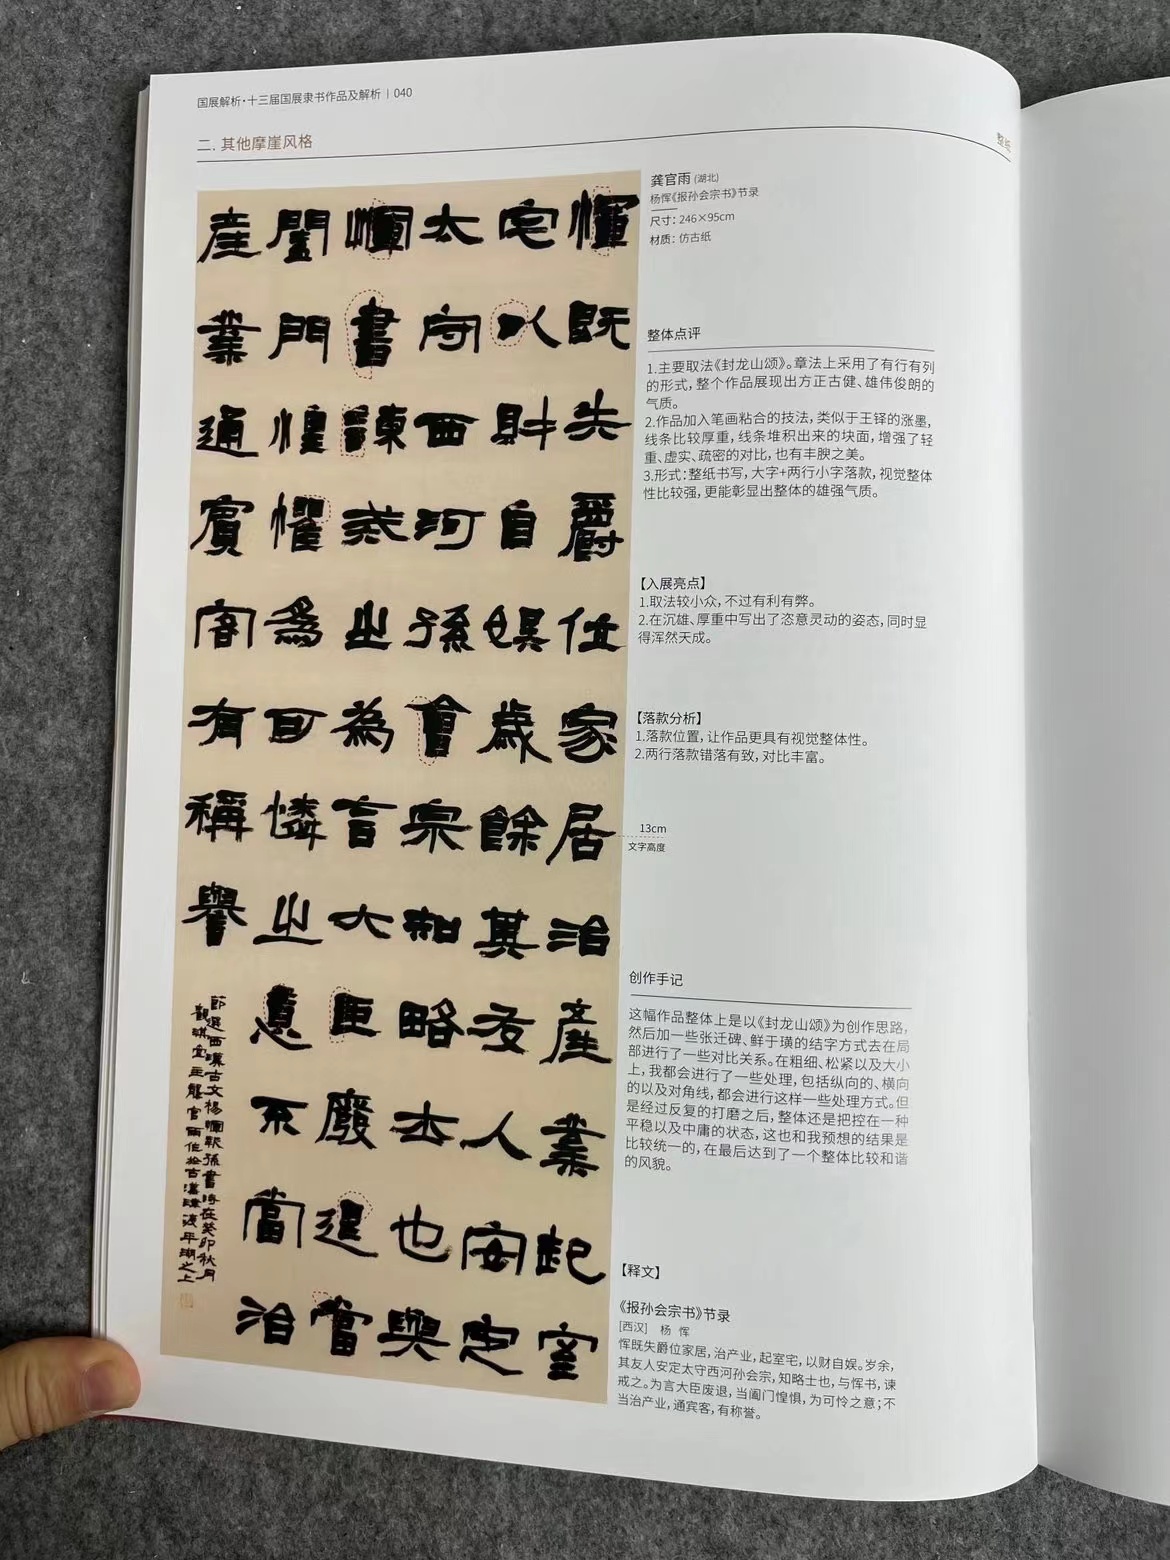 国展解析·十三届国展隶书作品及解析 | 040
二. 其他摩崖风格
整纸
龚官雨 (湖北)
杨恽《报孙会宗书》节录
尺寸：246×95cm
材质：仿古纸
惲既失爵位家居治產業起室
宅以財自娛歲餘其友人安定
太守西河孫會宗知略士也與
惲書諫戒之為言大臣廢退當
闔門惶懼為可憐之意不當治
產業通賓客有稱譽
節選西漢古文楊惲報孫書時在癸卯秋月
整体点评
1.主要取法《封龙山颂》。章法上采用了有行有列
的形式，整个作品展现出方正古健、雄伟俊朗的
气质。
2.作品加入笔画粘合的技法，类似于王铎的涨墨，
线条比较厚重，线条堆积出来的块面，增强了轻
重、虚实、疏密的对比，也有丰腴之美。
3.形式：整纸书写，大字+两行小字落款，视觉整体
性比较强，更能彰显出整体的雄强气质。
【入展亮点】
1.取法较小众，不过有利有弊。
2.在沉雄、厚重中写出了恣意灵动的姿态，同时显
得浑然天成。
【落款分析】
1.落款位置，让作品更具有视觉整体性。
2.两行落款错落有致，对比丰富。
13cm
文字高度
创作手记
这幅作品整体上是以《封龙山颂》为创作思路，
然后加一些张迁碑、鲜于璜的结字方式去在局
部进行了一些对比关系。在粗细、松紧以及大小
上，我都会进行了一些处理，包括纵向的、横向
的以及对角线，都会进行这样一些处理方式。但
是经过反复的打磨之后，整体还是把控在一种
平稳以及中庸的状态，这也和我预想的结果是
比较统一的，在最后达到了一个整体比较和谐
的风貌。
【释文】
《报孙会宗书》节录
[西汉] 杨 恽
恽既失爵位家居，治产业，起室宅，以财自娱。岁余，
其友人安定太守西河孙会宗，知略士也，与恽书，谏
戒之。为言大臣废退，当阖门惶惧，为可怜之意；不
当治产业，通宾客，有称誉。